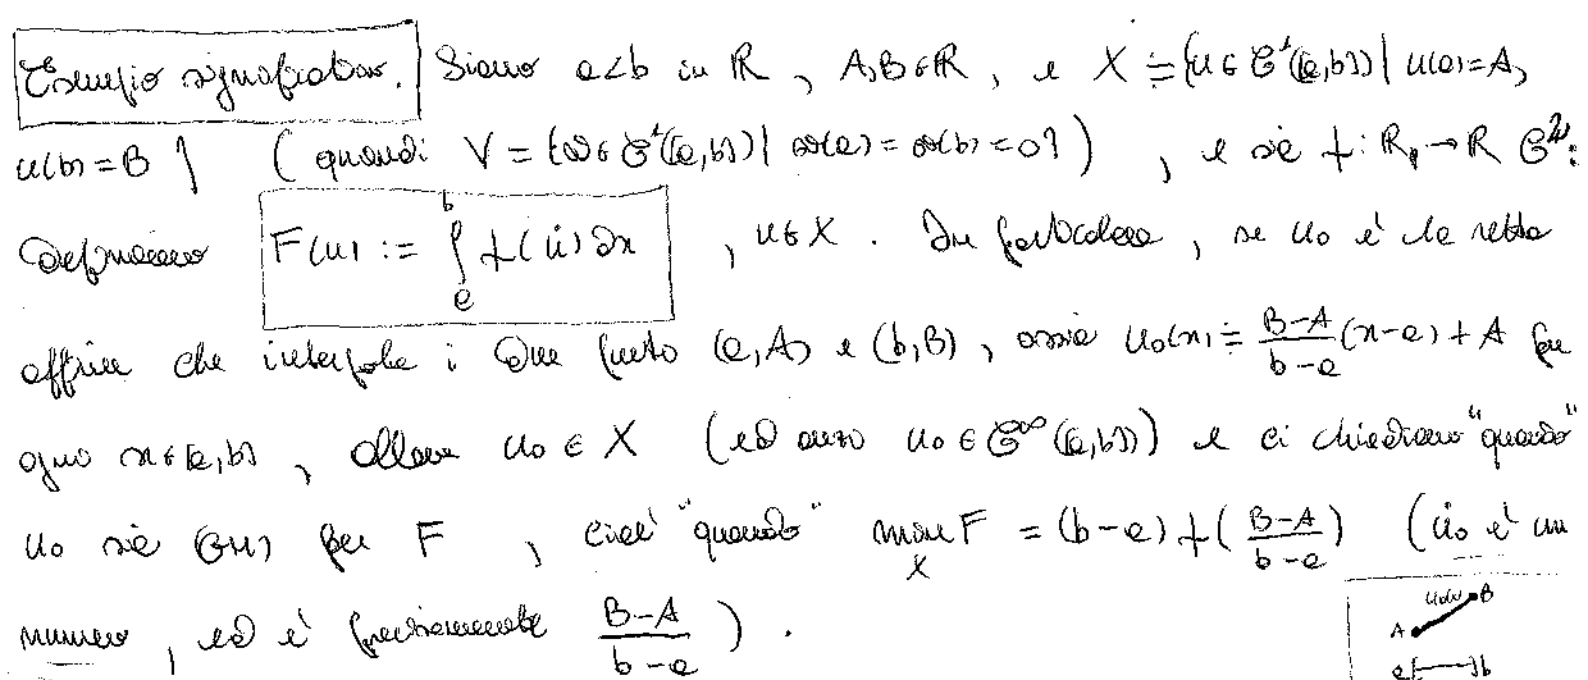 Esempio significativo. Siano a<b in ℝ, A,B∈ℝ, e X ≐ {u∈C¹([a,b]) | u(a)=A,
u(b)=B} (quindi V = {v∈C¹([a,b]) | v(a)=v(b)=0}), e sia f:ℝ→ℝ C²:
Definiamo F(u) := ∫_a^b f(u̇) dx, u∈X. In particolare, se u₀ è la retta
affine che interpola i due punti (a,A) e (b,B), ossia u₀(x) ≐ \frac{B-A}{b-a}(x-a)+A per
ogni x∈[a,b], allora u₀∈X (ed anzi u₀∈C^∞([a,b])) e ci chiediamo "quando"
u₀ sia per F, cioè "quando" min_X F = (b-a) f(\frac{B-A}{b-a}) (u̇₀ è un
numero, ed è precisamente \frac{B-A}{b-a}).
u₀(x) B
A
a b